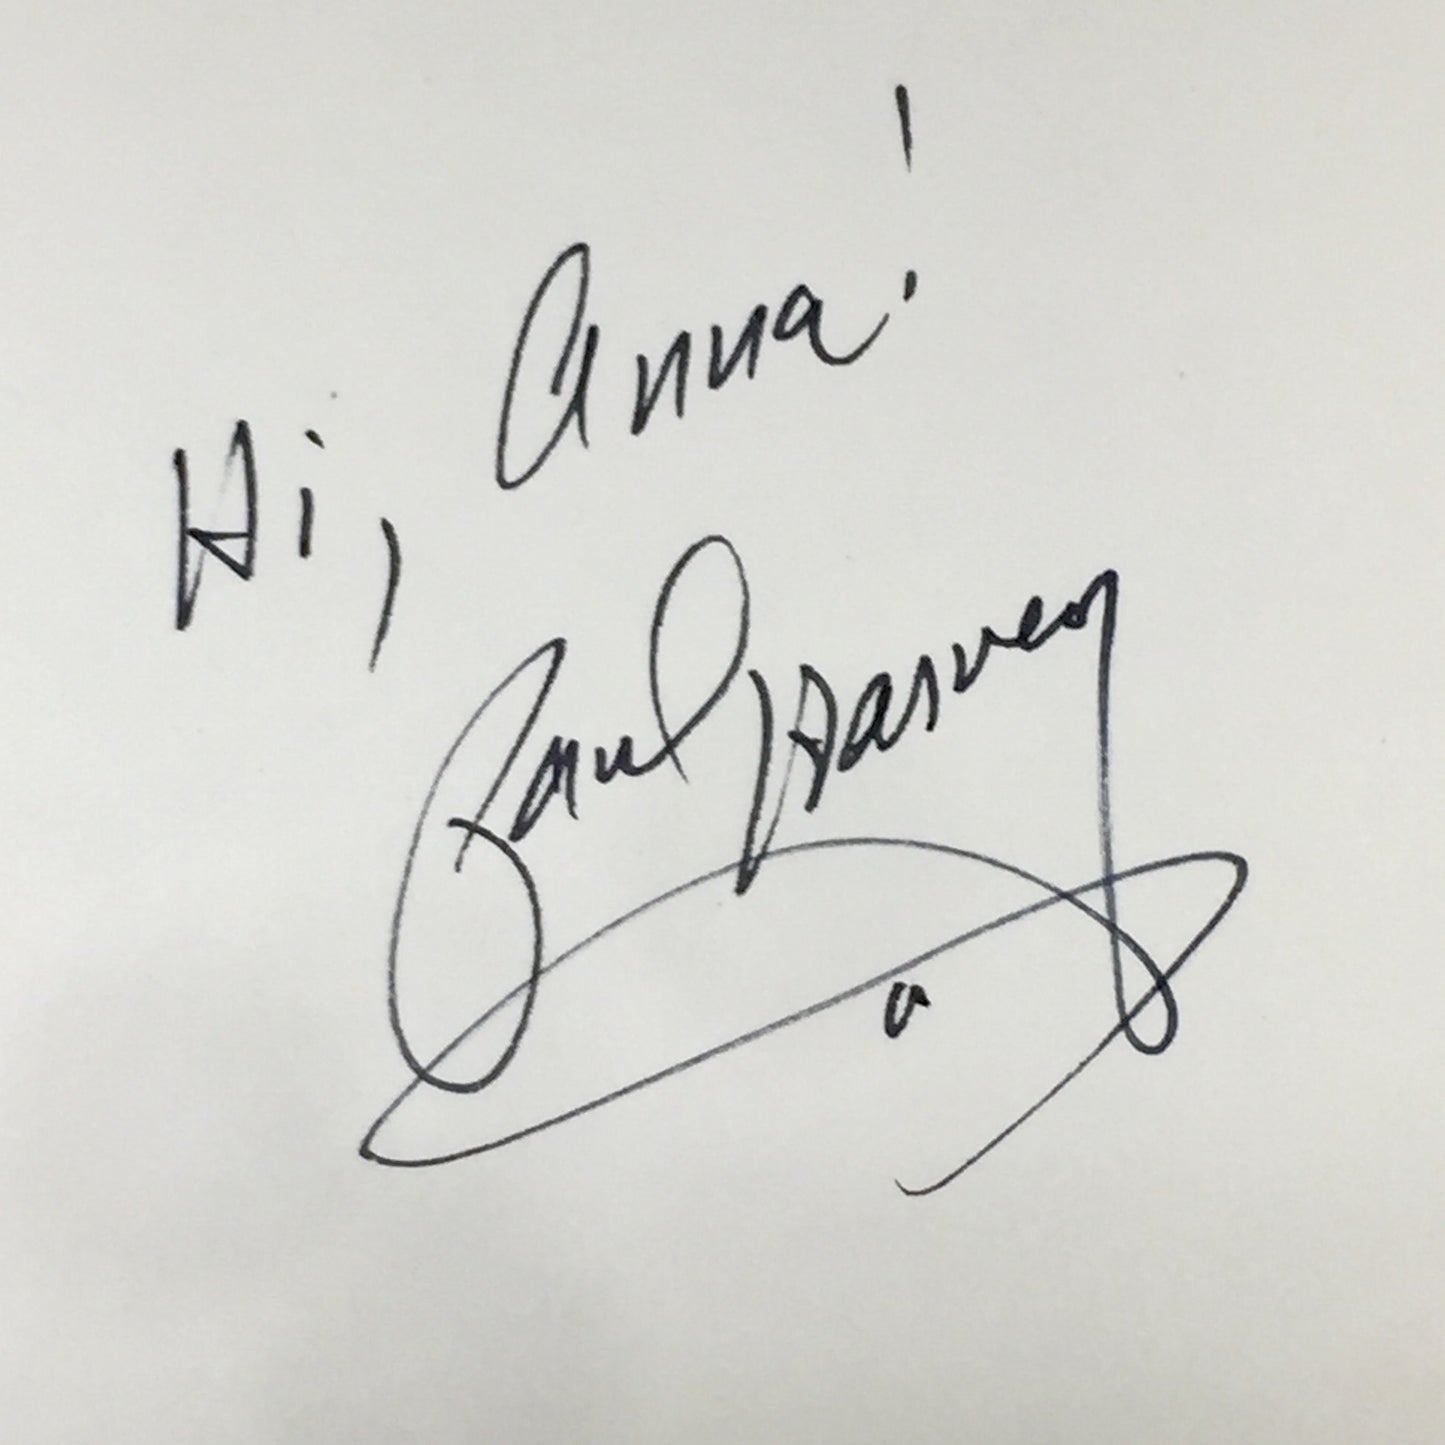 Hi, Anna!
Paul Harvey